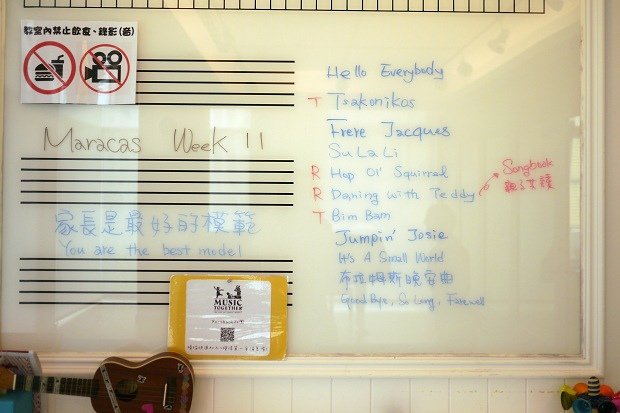 教室內禁止飲食、錄影(音)
Maracas Week 11
家長是最好的模範
You are the best model
MUSIC
TOGETHER
Hello Everybody
T Tsakonikos
Frere Jacques
Su La Li
R Hop Ol' Squirrel
R Daning with Teddy
T Bim Bam
Jumpin' Josie
It's A Small World
布拉姆斯晚安曲
Good Bye, So Long, Farewell
Songbook
親子共讀